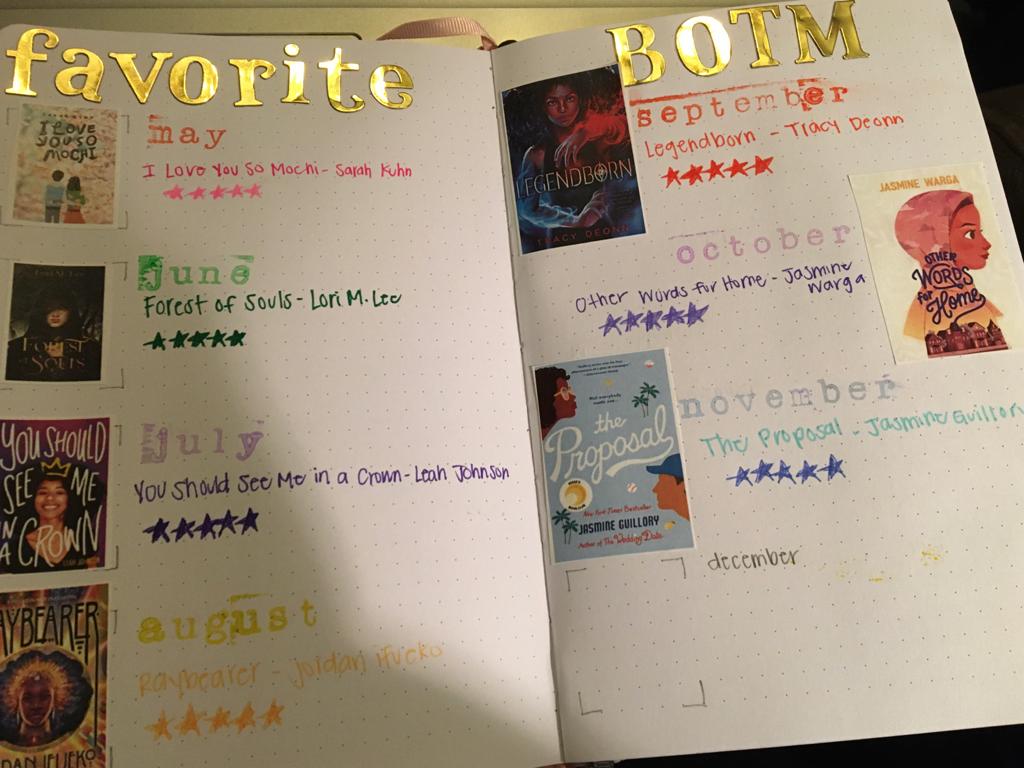 favorite
I LOVE
YOU SO
MOCHI
may
I Love You So Mochi - Sarah Kuhn
FOREST
OF
SOULS
june
Forest of Souls - Lori M. Lee
YOU SHOULD
SEE ME
IN
A CROWN
july
You Should See Me in a Crown - Leah Johnson
AYBEARER
DAN IFUEKO
august
Raybearer - Jordan Ifueko
BOTM
LEGENDBORN
TRACY DEONN
september
Legendborn - Tracy Deonn
JASMINE WARGA
OTHER
WORDS
for
Home
october
Other Words for Home - Jasmine
Warga
the
Proposal
New York Times Bestseller
JASMINE GUILLORY
Author of The Wedding Date
november
The Proposal - Jasmine Guillory
december